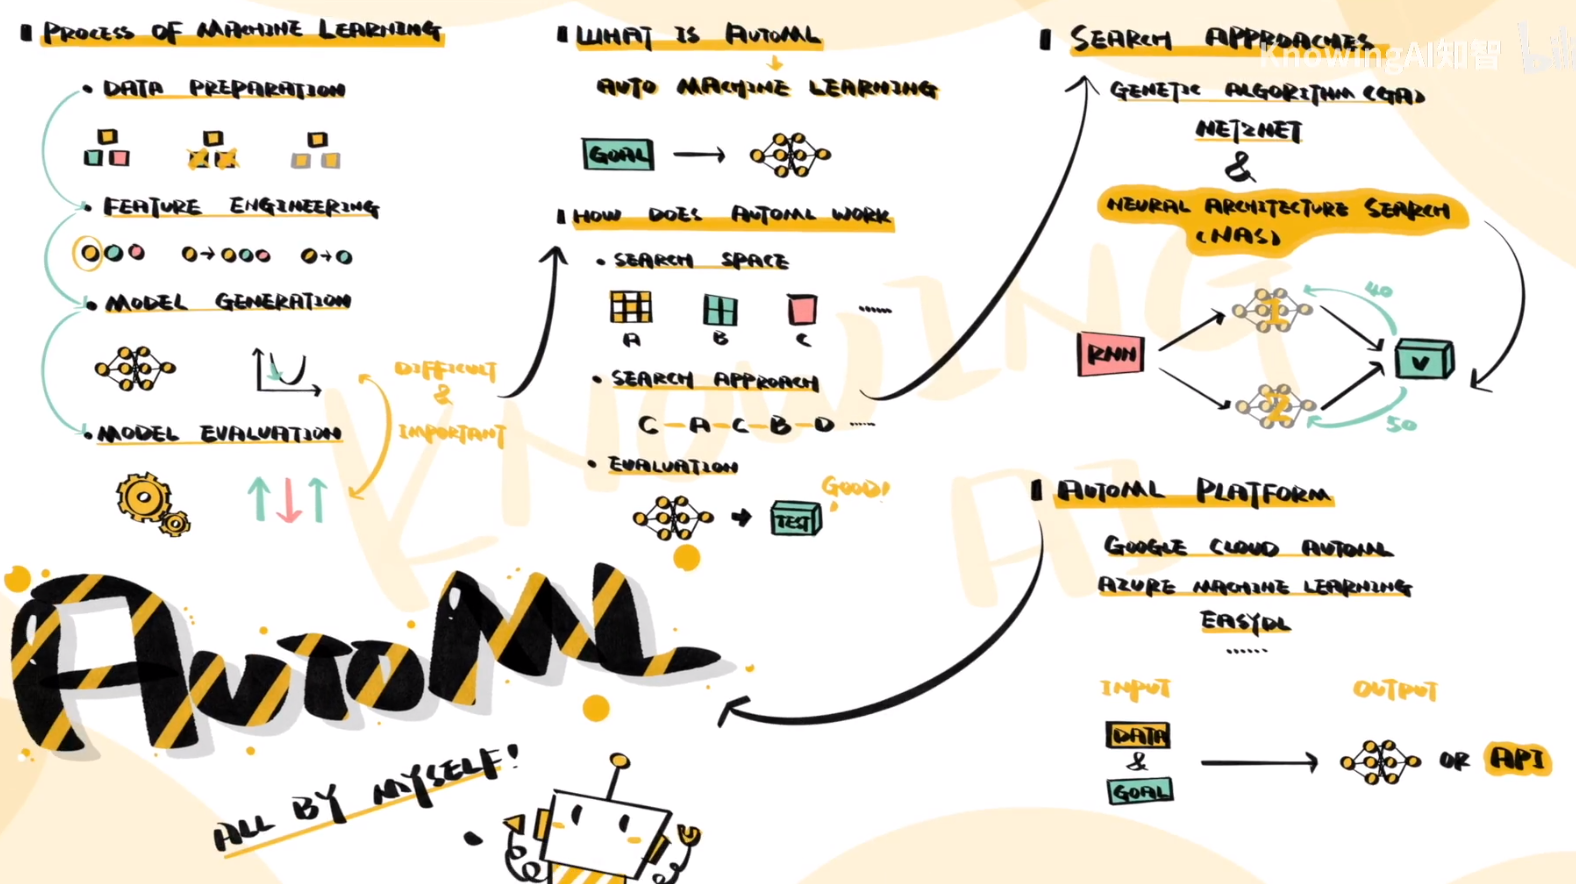 PROCESS OF MACHINE LEARNING
• DATA PREPARATION
• FEATURE ENGINEERING
• MODEL GENERATION
DIFFICULT
&
IMPORTANT
• MODEL EVALUATION
WHAT IS AUTOML
AUTO MACHINE LEARNING
GOAL
HOW DOES AUTOML WORK
• SEARCH SPACE
A B C ......
• SEARCH APPROACH
C - A - C - B - D ......
• EVALUATION
TEST
GOOD!
SEARCH APPROACHES
KnowingAI知智
GENETIC ALGORITHM (GA)
NET2NET
&
NEURAL ARCHITECTURE SEARCH
(NAS)
RNN
1
2
40
V
50
AUTOML PLATFORM
GOOGLE CLOUD AUTOML
AZURE MACHINE LEARNING
EASYDL
......
INPUT OUTPUT
DATA
&
GOAL
OR API
AUTOML
ALL BY MYSELF!
KNOWING
AI